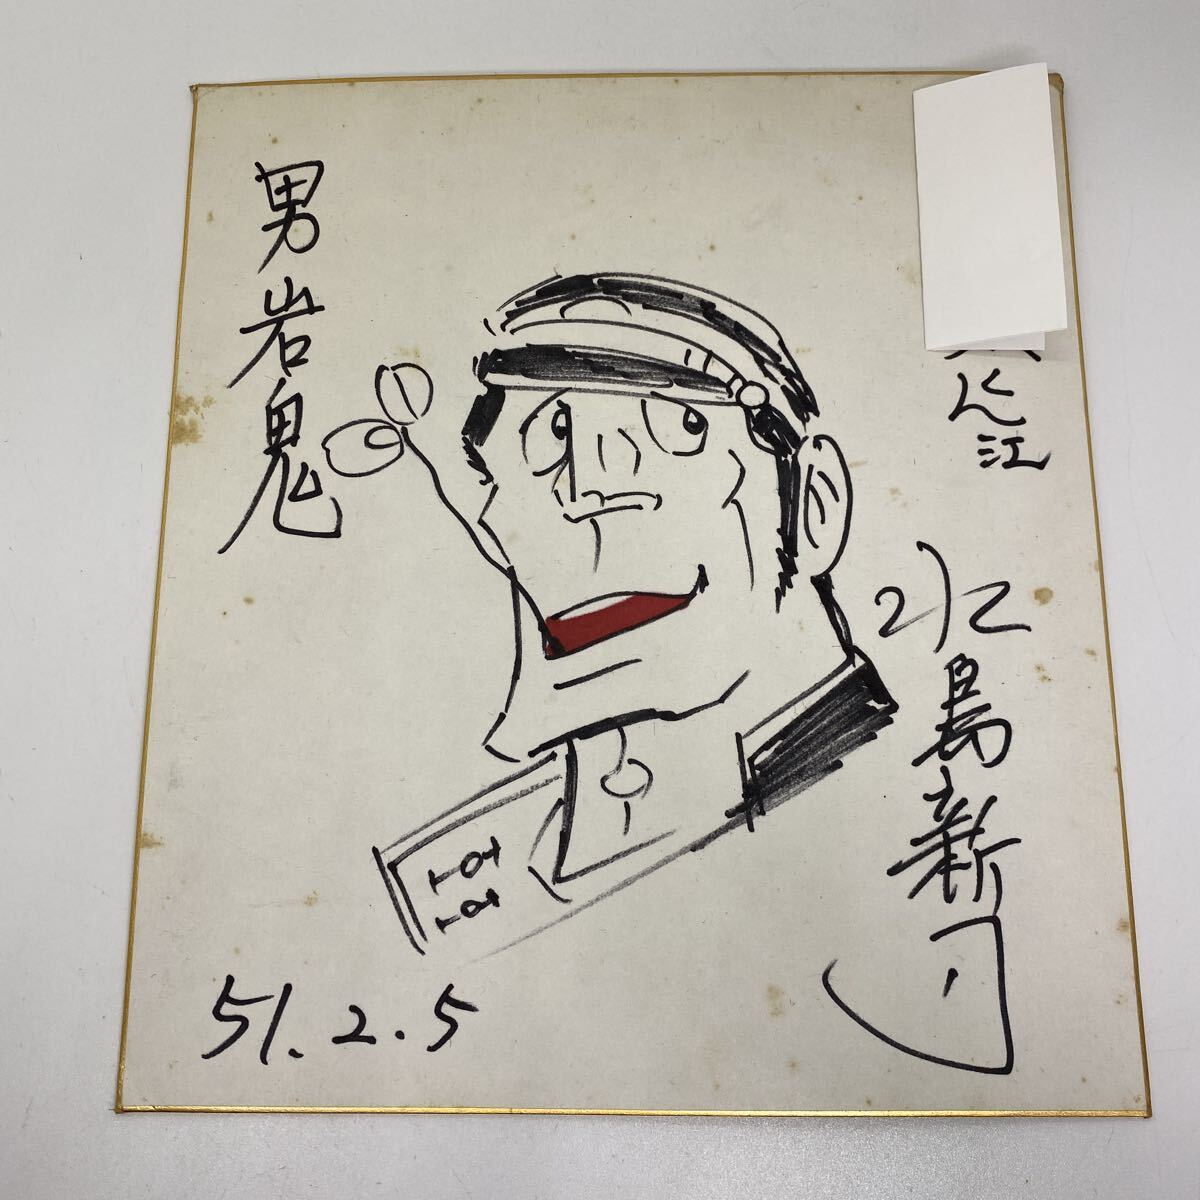 くん江
水島新司
男岩鬼
51.2.5